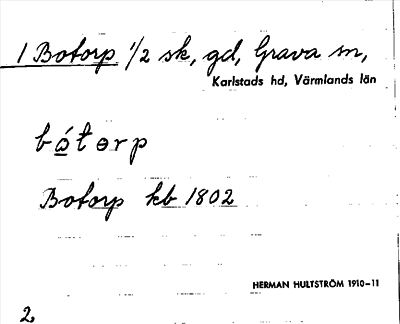 1 Botorp 1/2 sk, gd, Grava sn,
Karlstads hd, Värmlands län
bo̲´torp
Botorp kb 1802
HERMAN HULTSTRÖM 1910-11
2,